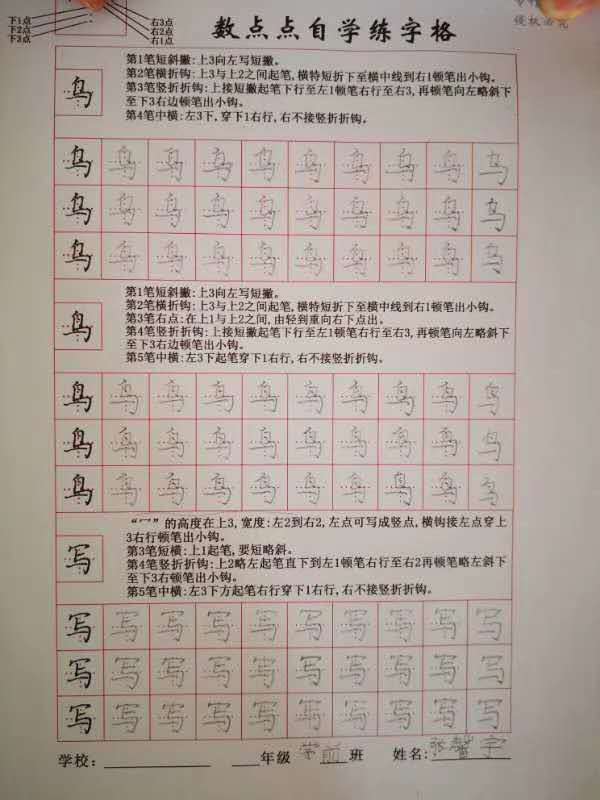 下1点
下2点
下3点
右3点
右2点
右1点
数点点自学练字格
侵权必究
乌
第1笔短斜撇:上3向左写短撇。
第2笔横折钩:上3与上2之间起笔,横特短折下至横中线到右1顿笔出小钩。
第3笔竖折折钩:上接短撇起笔下行至左1顿笔右行至右3,再顿笔向左略斜下
至下3右边顿笔出小钩。
第4笔中横:左3下,穿下1右行,右不接竖折折钩。
乌 乌 乌 乌 乌 乌 乌 乌 乌 乌
乌 乌 乌 乌 乌 乌 乌 乌 乌 乌
乌 乌 乌 乌 乌 乌 乌 乌 乌 乌
鸟
第1笔短斜撇:上3向左写短撇。
第2笔横折钩:上3与上2之间起笔,横特短折下至横中线到右1顿笔出小钩。
第3笔右点:在上1与上2之间,由轻到重向右下点出。
第4笔竖折折钩:上接短撇起笔下行至左1顿笔右行至右3,再顿笔向左略斜下
至下3右边顿笔出小钩。
第5笔中横:左3下起笔穿下1右行,右不接竖折折钩。
鸟 鸟 鸟 鸟 鸟 鸟 鸟 鸟 鸟 鸟
鸟 鸟 鸟 鸟 鸟 鸟 鸟 鸟 鸟 鸟
鸟 鸟 鸟 鸟 鸟 鸟 鸟 鸟 鸟 鸟
写
“冖”的高度在上3,宽度:左2到右2,左点可写成竖点,横钩接左点穿上
3右行顿笔出小钩。
第3笔短横:上1起笔,要短略斜。
第4笔竖折折钩:上2略左起笔直下到左1顿笔右行至右2再顿笔略左斜下
至下3右顿笔出小钩。
第5笔中横:左3下方起笔右行穿下1右行,右不接竖折折钩。
写 写 写 写 写 写 写 写 写 写
写 写 写 写 写 写 写 写 写 写
写 写 写 写 写 写 写 写 写 写
学校: 年级 学前 班 姓名: 张馨宇